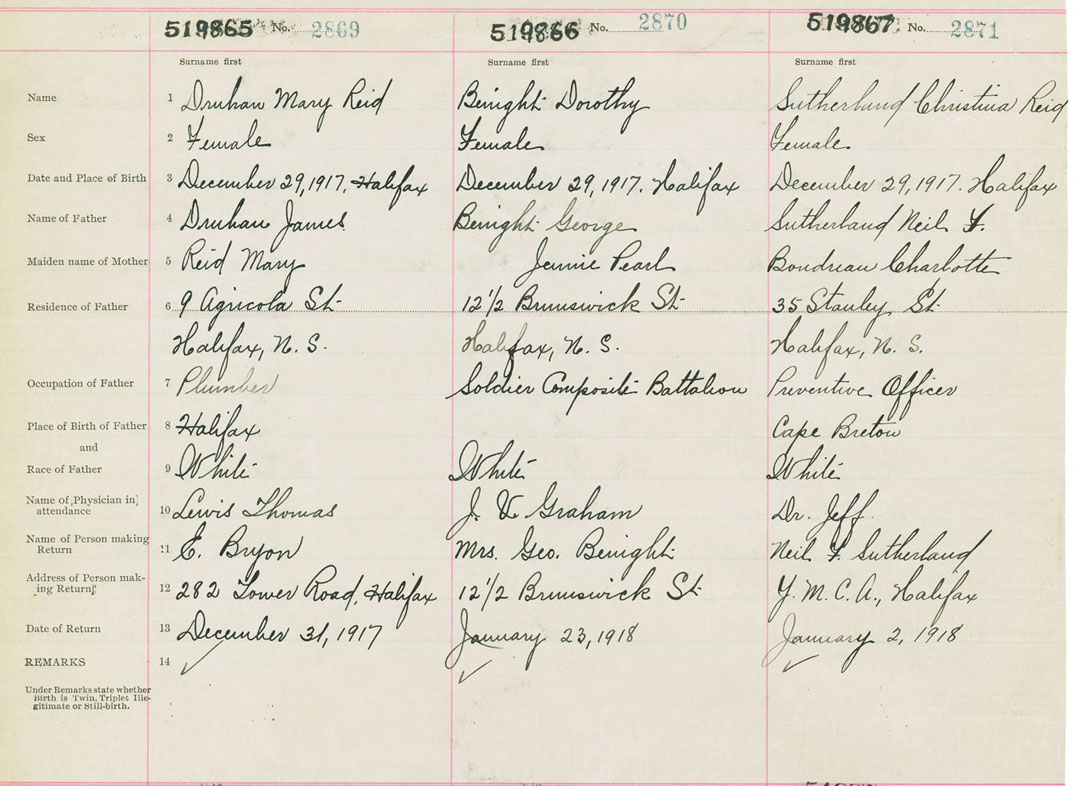 519865 No. 2869 519866 No. 2870 519867 No. 2871
Surname first Surname first Surname first
Name 1 Druhan Mary Reid Benight Dorothy Sutherland Christina Reid
Sex 2 Female Female Female
Date and Place of Birth 3 December 29, 1917, Halifax December 29, 1917. Halifax December 29, 1917. Halifax
Name of Father 4 Druhan James Benight George Sutherland Neil F.
Maiden name of Mother 5 Reid Mary Jennie Pearl Boudreau Charlotte
Residence of Father 6 9 Agricola St 12 1/2 Brunswick St 35 Stanley St
Halifax, N. S. Halifax, N. S. Halifax, N. S.
Occupation of Father 7 Plumber Soldier Composite Battalion Preventive Officer
Place of Birth of Father 8 Halifax Cape Breton
and
Race of Father 9 White White White
Name of Physician in
attendance 10 Lewis Thomas J. V. Graham Dr. Jeff.
Name of Person making
Return 11 E. Bryon Mrs. Geo. Benight Neil F. Sutherland
Address of Person mak-
ing Return 12 282 Tower Road, Halifax 12 1/2 Brunswick St Y. M. C. A., Halifax
Date of Return 13 December 31, 1917 January 23, 1918 January 2, 1918
REMARKS 14
Under Remarks state whether
Birth is Twin, Triplet Ille-
gitimate or Still-birth.